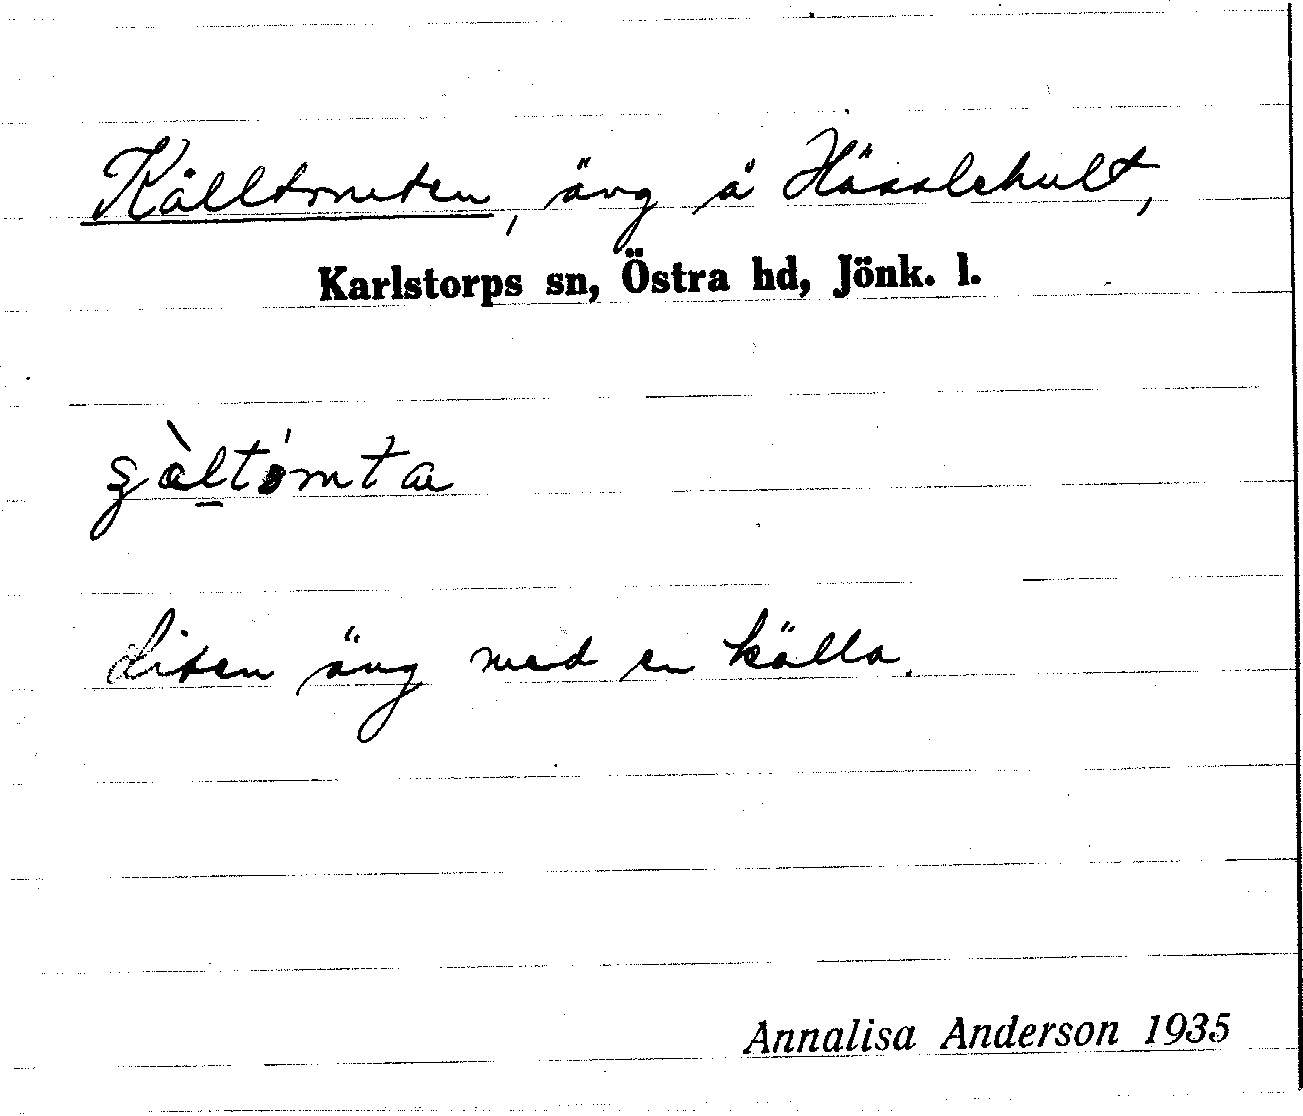 Källtomten, äng å Hässlehult,
Karlstorps sn, Östra hd, Jönk. l.
Liten äng med en källa.
Annalisa Anderson 1935